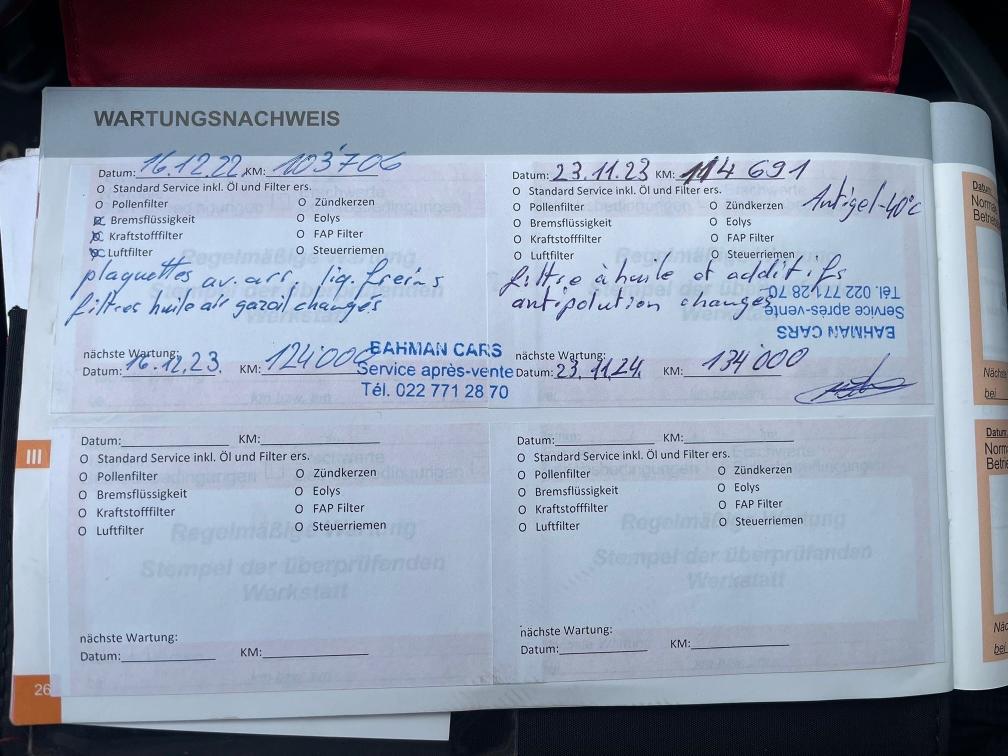 WARTUNGSNACHWEIS
Datum: 16.12.22 KM: 103'706
O Standard Service inkl. Öl und Filter ers.
O Pollenfilter O Zündkerzen
Bremsflüssigkeit O Eolys
Kraftstofffilter O FAP Filter
Luftfilter O Steuerriemen
plaquettes av. arr, liq. freins
filtres huile air gazoil changés
nächste Wartung:
Datum: 16.12.23. KM: 124'000
BAHMAN CARS
Service après-vente
Tél. 022 771 28 70
Datum: 23.11.23 KM: 114 691
O Standard Service inkl. Öl und Filter ers.
O Pollenfilter O Zündkerzen
Antigel-40°c
O Bremsflüssigkeit O Eolys
O Kraftstofffilter O FAP Filter
O Luftfilter O Steuerriemen
filtre à huile et additifs
antipolution changés
BAHMAN CARS
Service après-vente
Tél. 022 771 28 70
nächste Wartung:
Datum: 23.11.24. KM: 134'000
Datum: KM:
O Standard Service inkl. Öl und Filter ers.
O Pollenfilter O Zündkerzen
O Bremsflüssigkeit O Eolys
O Kraftstofffilter O FAP Filter
O Luftfilter O Steuerriemen
Regelmäßige Wartung
Stempel der überprüfenden
Werkstatt
nächste Wartung:
Datum: KM:
Datum: KM:
O Standard Service inkl. Öl und Filter ers.
O Pollenfilter O Zündkerzen
O Bremsflüssigkeit O Eolys
O Kraftstofffilter O FAP Filter
O Luftfilter O Steuerriemen
Regelmäßige Wartung
Stempel der überprüfenden
Werkstatt
nächste Wartung:
Datum: KM:
III
26
Datum
Norma
Betrie
Nächs
bei
Datum
Norm
Betrie
Näc
bei